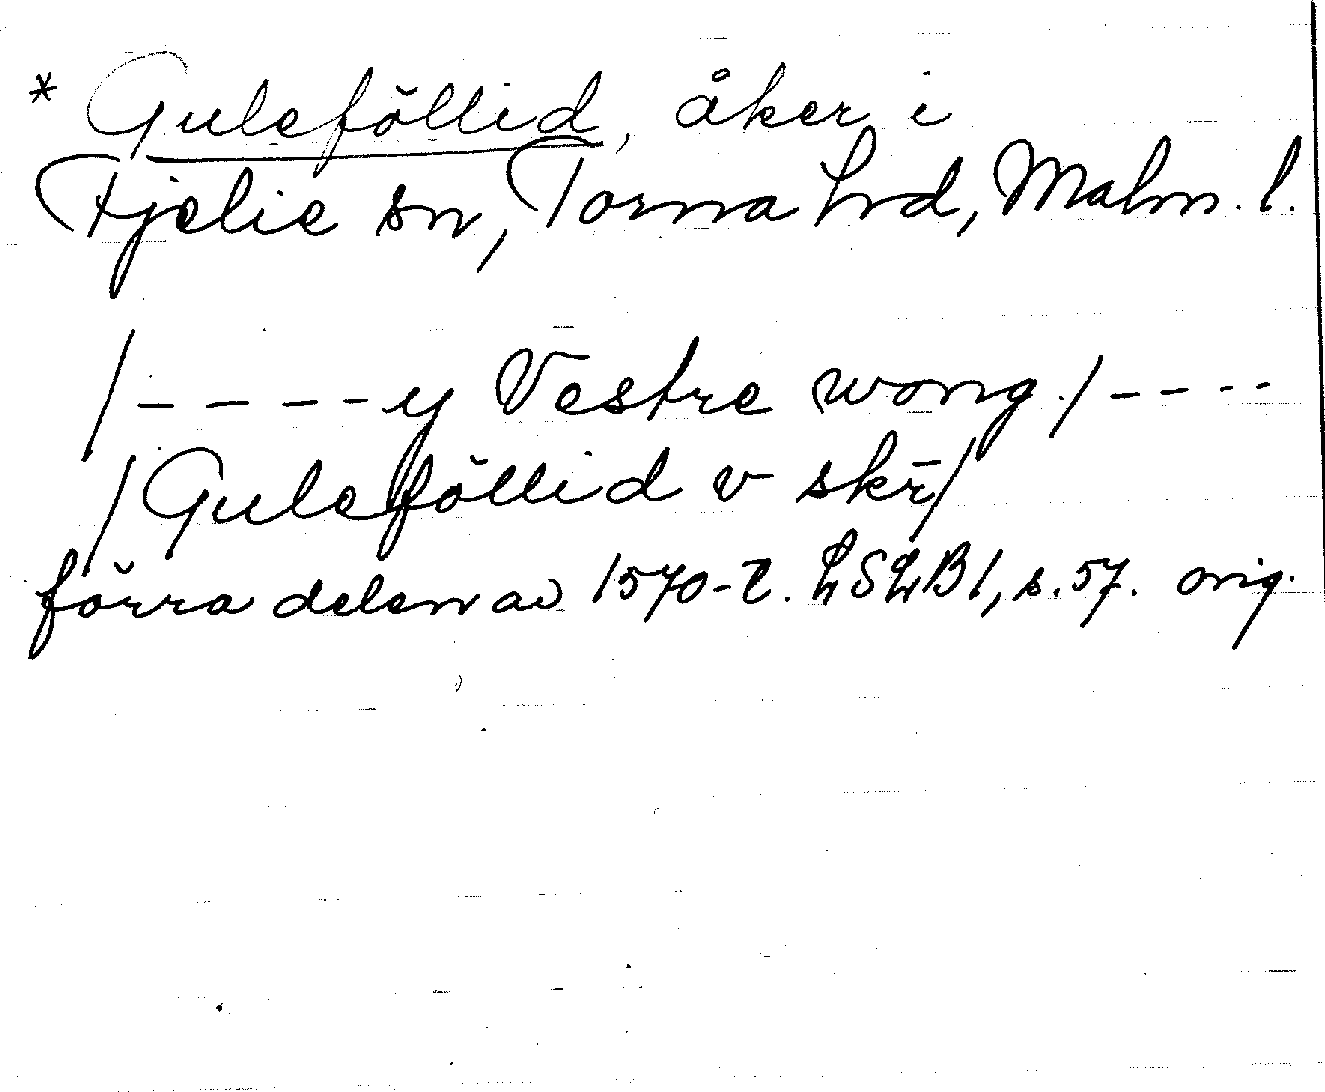 * Guleföllid, åker i
Fjelie sn, Torna hrd, Malm. l.
/----y Vestre wong./----
/Guleföllid v skr̄/
förra delen av 1570-t. LSLB1, s.57. orig.